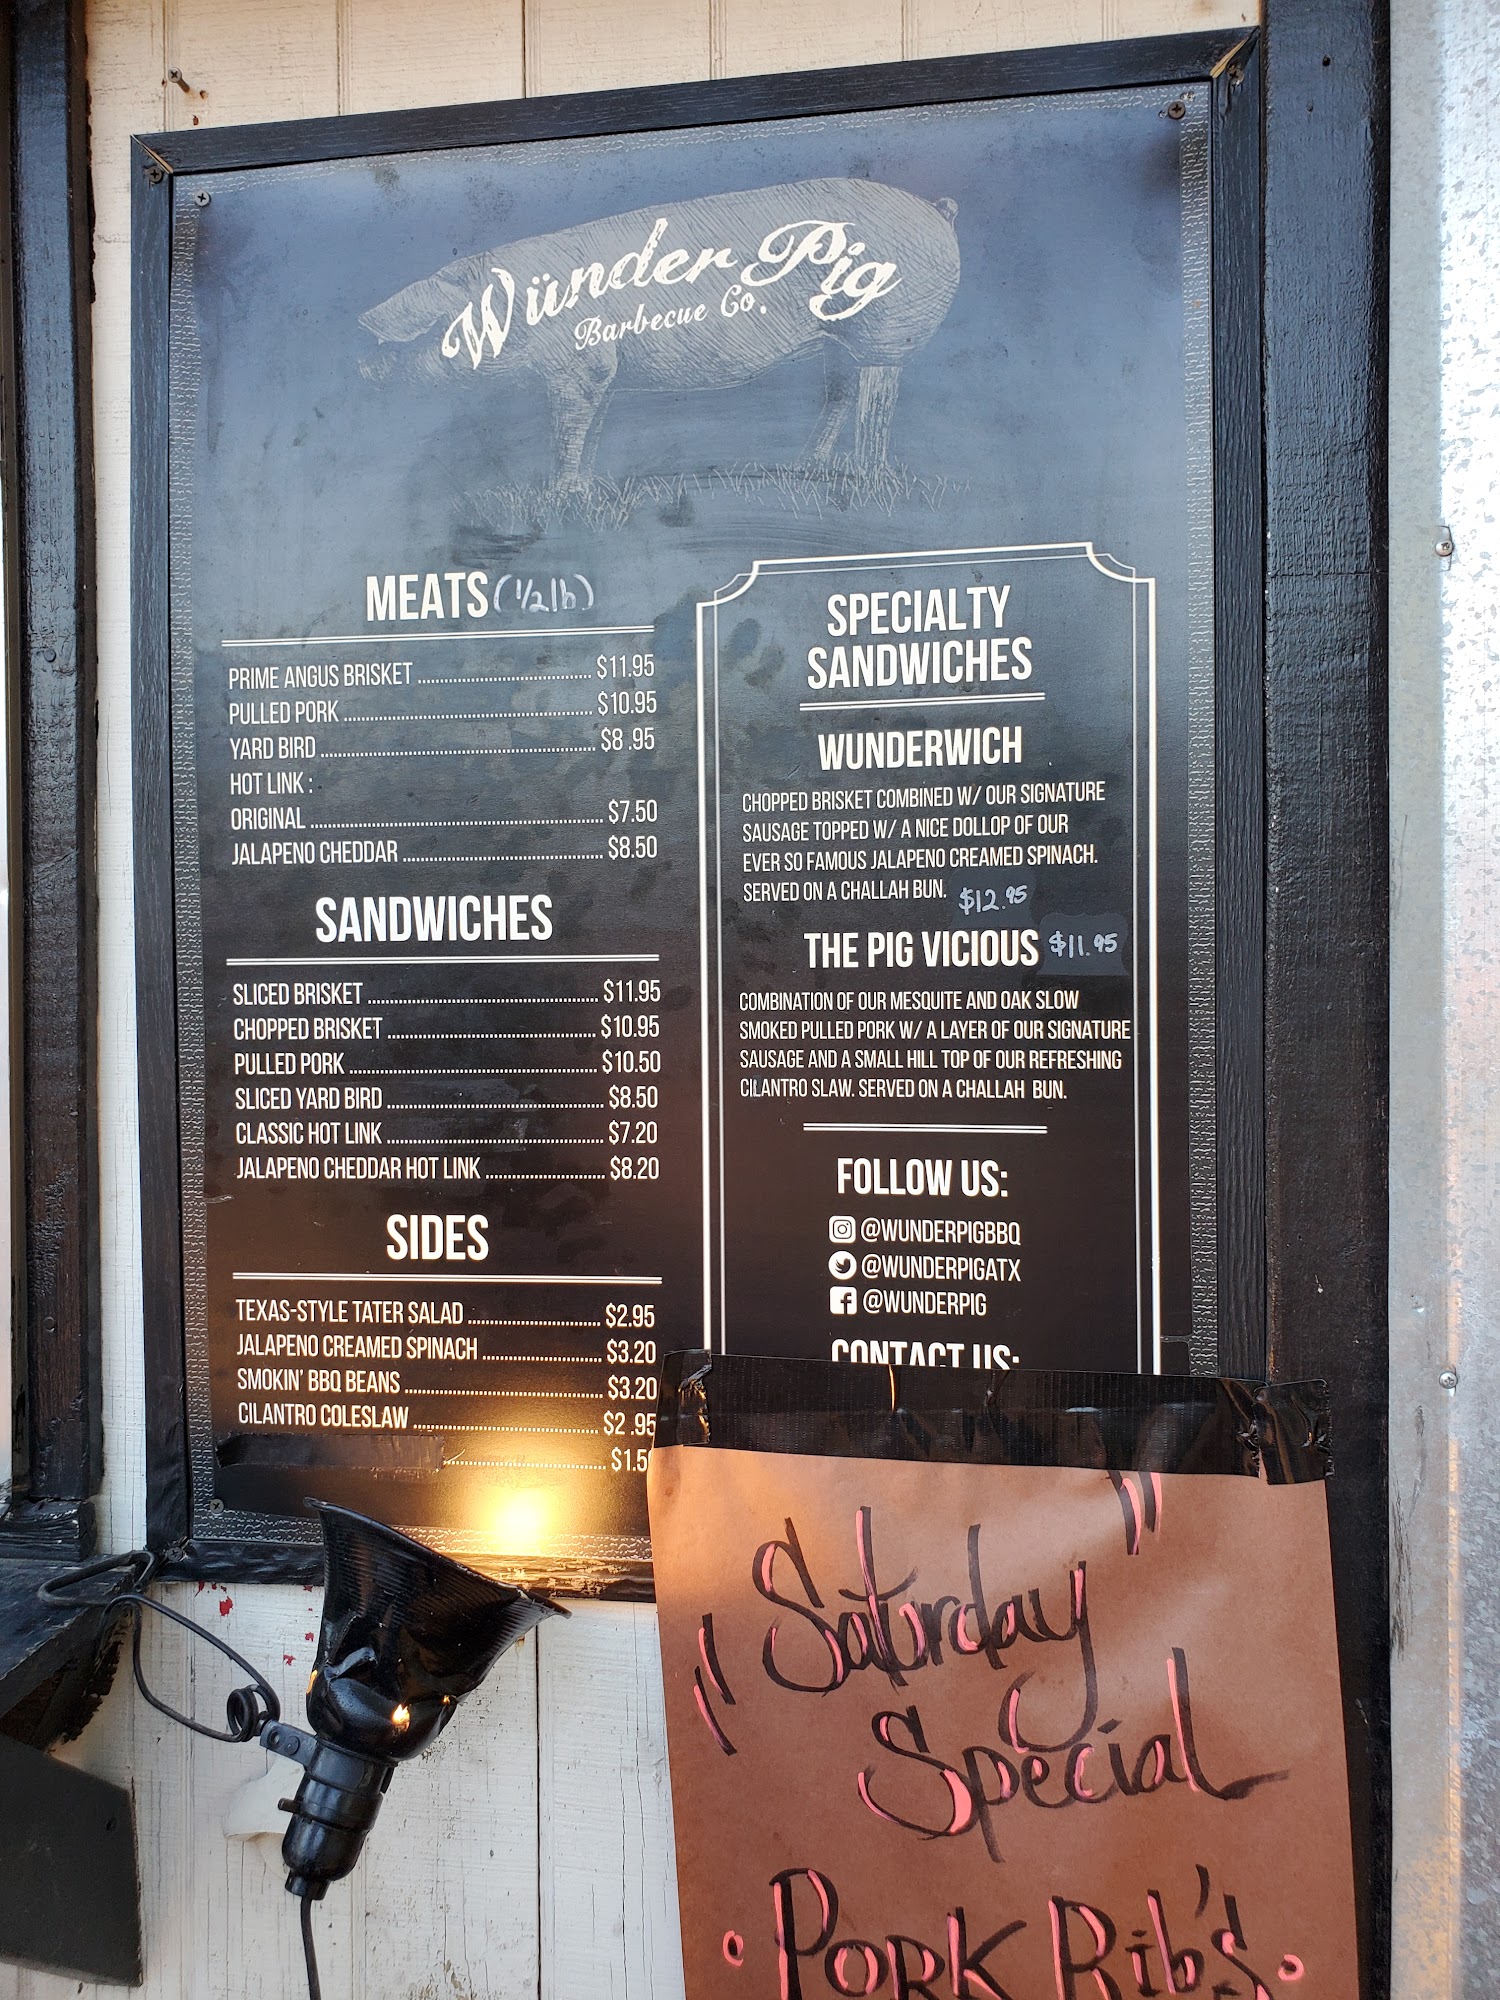 Wünder Pig
Barbecue Co.
MEATS (1/2 lb)
PRIME ANGUS BRISKET $11.95
PULLED PORK $10.95
YARD BIRD $8 .95
HOT LINK :
ORIGINAL $7.50
JALAPENO CHEDDAR $8.50
SANDWICHES
SLICED BRISKET $11.95
CHOPPED BRISKET $10.95
PULLED PORK $10.50
SLICED YARD BIRD $8.50
CLASSIC HOT LINK $7.20
JALAPENO CHEDDAR HOT LINK $8.20
SIDES
TEXAS-STYLE TATER SALAD $2.95
JALAPENO CREAMED SPINACH $3.20
SMOKIN' BBQ BEANS $3.20
CILANTRO COLESLAW $2 .95
SPECIALTY
SANDWICHES
WUNDERWICH
CHOPPED BRISKET COMBINED W/ OUR SIGNATURE
SAUSAGE TOPPED W/ A NICE DOLLOP OF OUR
EVER SO FAMOUS JALAPENO CREAMED SPINACH.
SERVED ON A CHALLAH BUN. $12.95
THE PIG VICIOUS $11.95
COMBINATION OF OUR MESQUITE AND OAK SLOW
SMOKED PULLED PORK W/ A LAYER OF OUR SIGNATURE
SAUSAGE AND A SMALL HILL TOP OF OUR REFRESHING
CILANTRO SLAW. SERVED ON A CHALLAH BUN.
FOLLOW US:
@WUNDERPIGBBQ
@WUNDERPIGATX
@WUNDERPIG
CONTACT US:
"Saturday"
Special
• PORK Rib's •